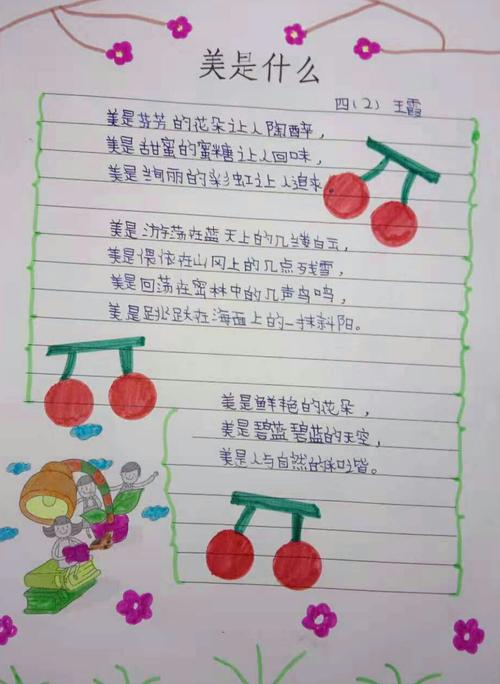 美是什么
四(2) 王霞
美是芬芳的花朵让人陶醉，
美是甜蜜的蜜糖让人回味，
美是绚丽的彩虹让人追求
美是游荡在蓝天上的几缕白云，
美是偎依在山冈上的几点残雪，
美是回荡在密林中的几声鸟鸣，
美是跳跃在海面上的一抹斜阳。
美是鲜艳的花朵，
美是碧蓝碧蓝的天空，
美是人与自然的和谐。